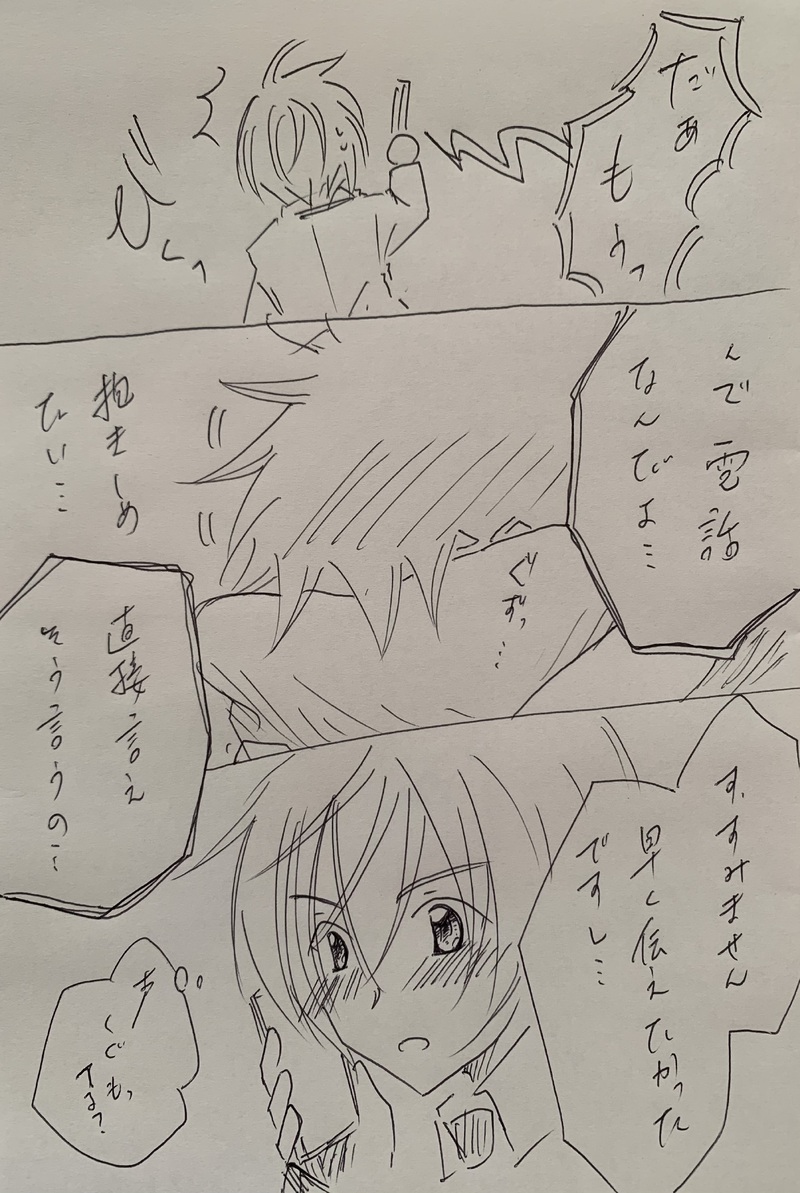 だぁ
もうっ
びくっ
んで 電話
なんだよ…
抱きしめ
たい…
ぐずっ…
直接言え
そう言うの…
す、すみません
早く伝えたかった
ですし…
あ
くぐもっ
てる?